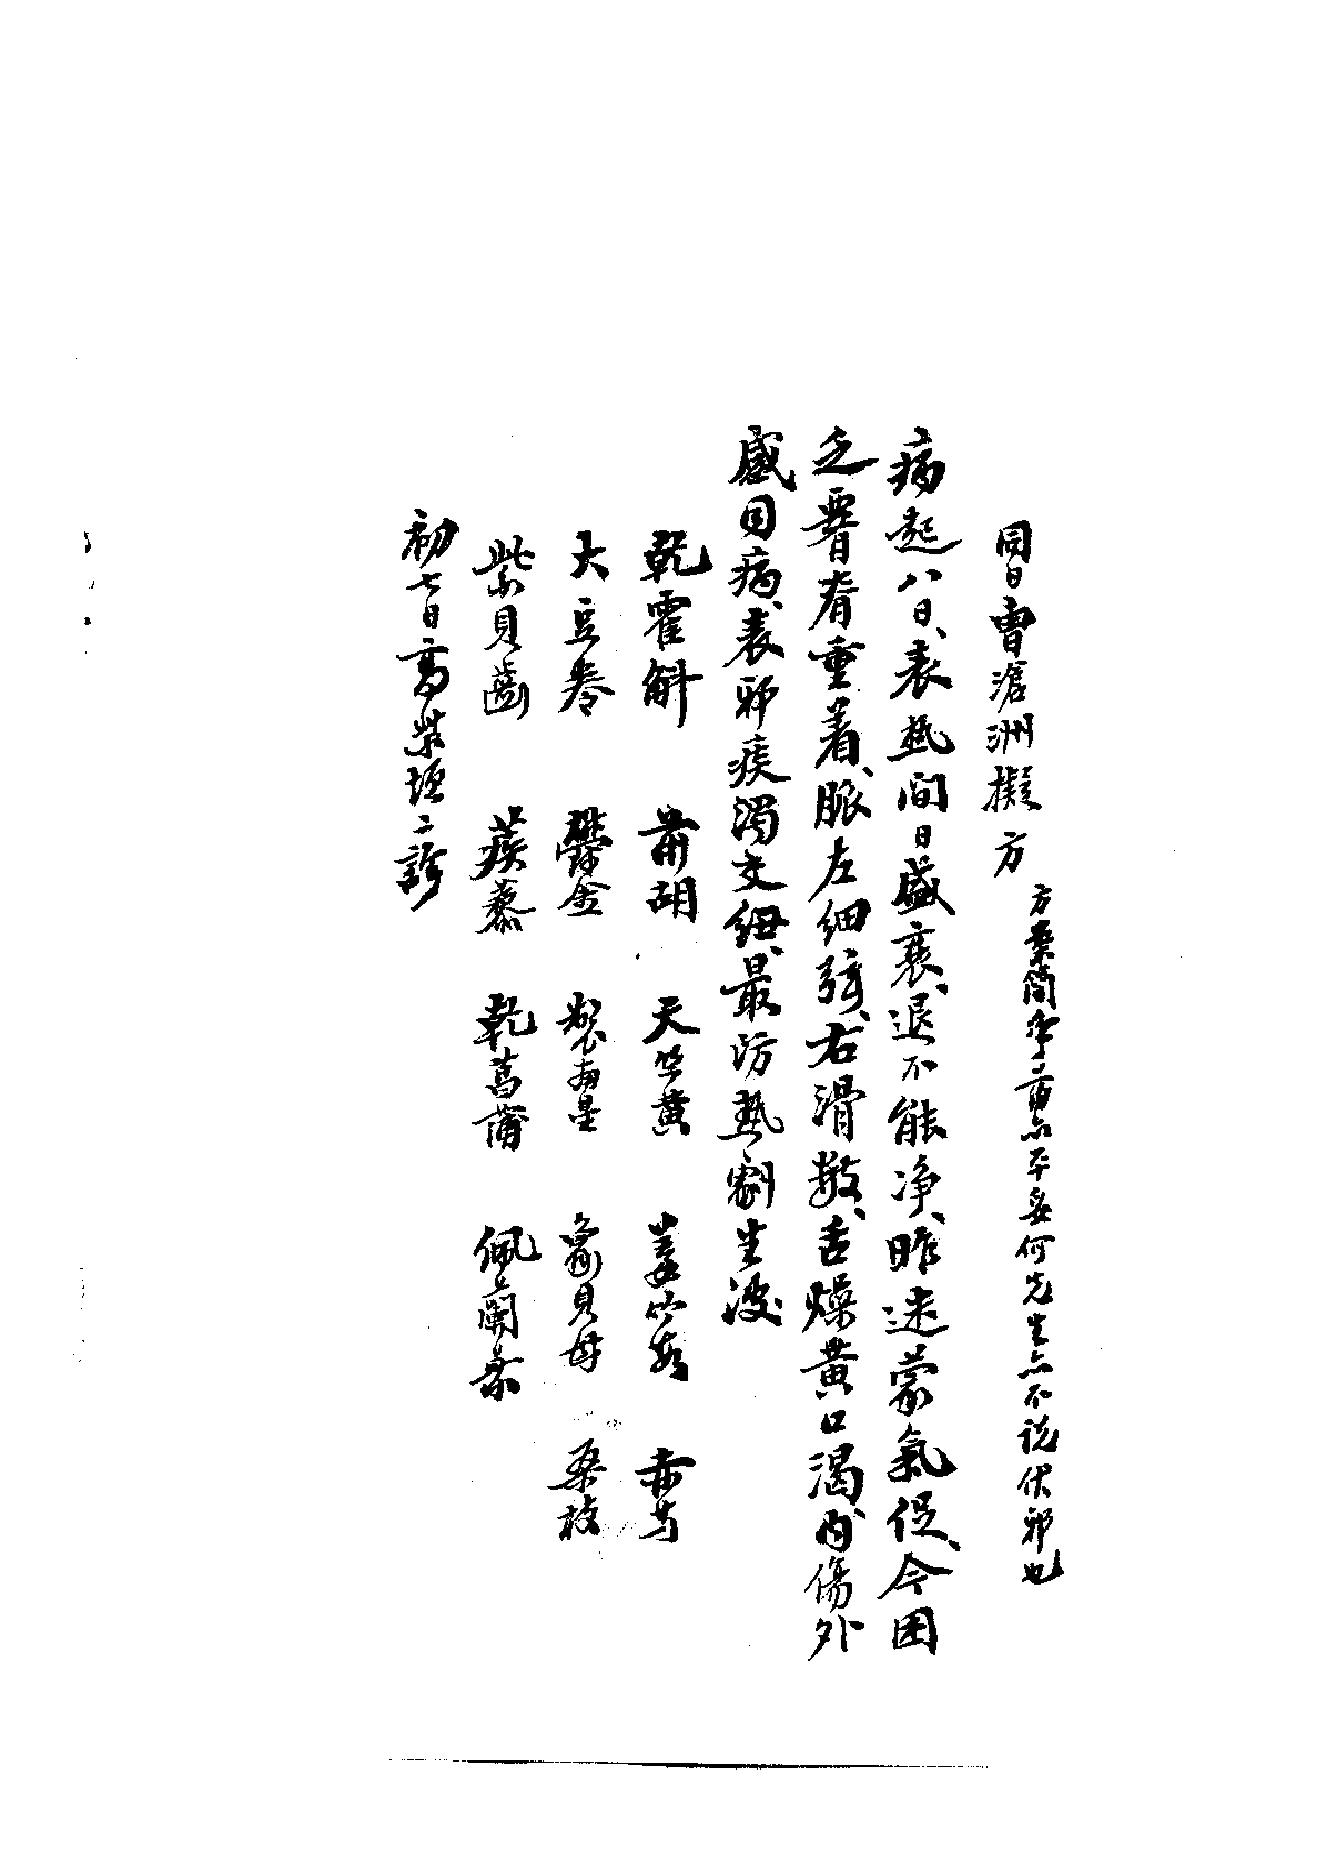 同日曹滄洲擬方 方案簡準藥亦平妥何先生亦不说伏邪也
病起八日、表热间日盛衰、退不能净、昨迷蒙氣促、今困
乏瞀脊重着、脈左细弦、右滑数、舌燥黄口渴、内傷外
感同病、表邪痰濁交紐、最防热劇生波
乾霍斛 前胡 天竺黄 姜竹茹 赤芍
大豆卷 鬱金 製南星 象貝母 桑枝
紫貝齒 蒺藜 乾菖蒲 佩蘭葉
初七日高紫垣二診